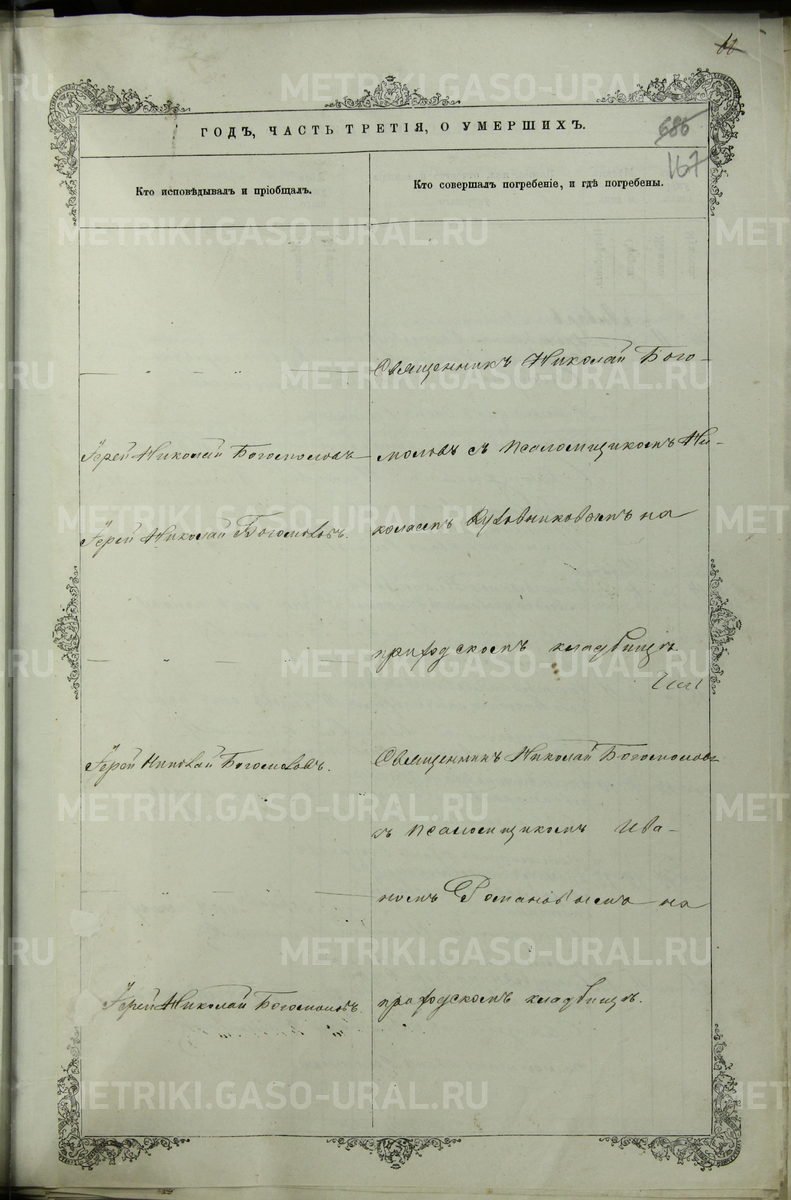 11
ГОДЪ, ЧАСТЬ ТРЕТІЯ, О УМЕРШИХЪ.
686
167
Кто исповѣдывалъ и пріобщалъ.
Кто совершалъ погребеніе, и гдѣ погребены.
Священникъ Николай Бого-
Іерей Николай Богомоловъ
моловъ съ псаломщикомъ Ни-
Іерей Николай Богомоловъ.
колаемъ на
приходскомъ кладбищѣ.
Іерей Николай Богомоловъ.
Священникъ Николай Богомоловъ
съ псаломщикомъ Ива-
номъ Романовымъ на
Іерей Николай Богомоловъ
приходскомъ кладбищѣ.
METRIKI.GASO-URAL.RU